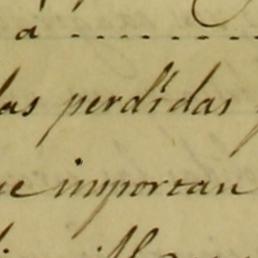 á ........
las perdidas
que importan